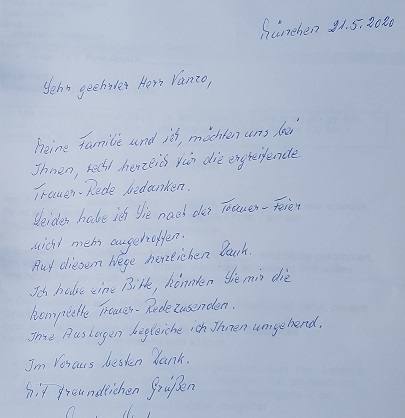 München 21.5.2020
Sehr geehrter Herr Vanzo,
Meine Familie und ich, möchten uns bei
Ihnen, recht herzlich für die ergreifende
Trauer-Rede bedanken.
Leider habe ich Sie nach der Trauer-Feier
nicht mehr angetroffen.
Auf diesem Wege herzlichen Dank.
Ich habe eine Bitte, könnten Sie mir die
komplette Trauer-Rede zusenden.
Ihre Auslagen begleiche ich Ihnen umgehend.
Im Voraus besten Dank.
Mit freundlichen Grüßen